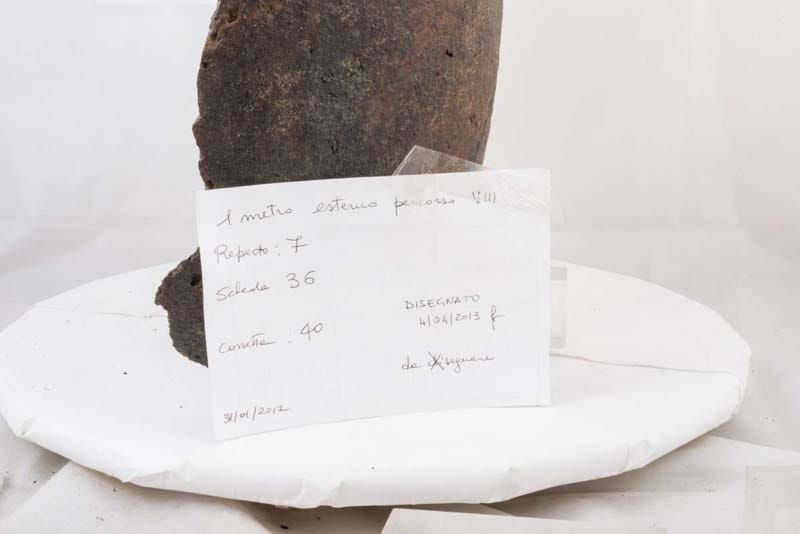 1 metro esterno percorso VIII
Reperto : 7
Scheda 36
Cassetta : 40
DISEGNATO
4/04/2013
da disegnare
31/01/2012